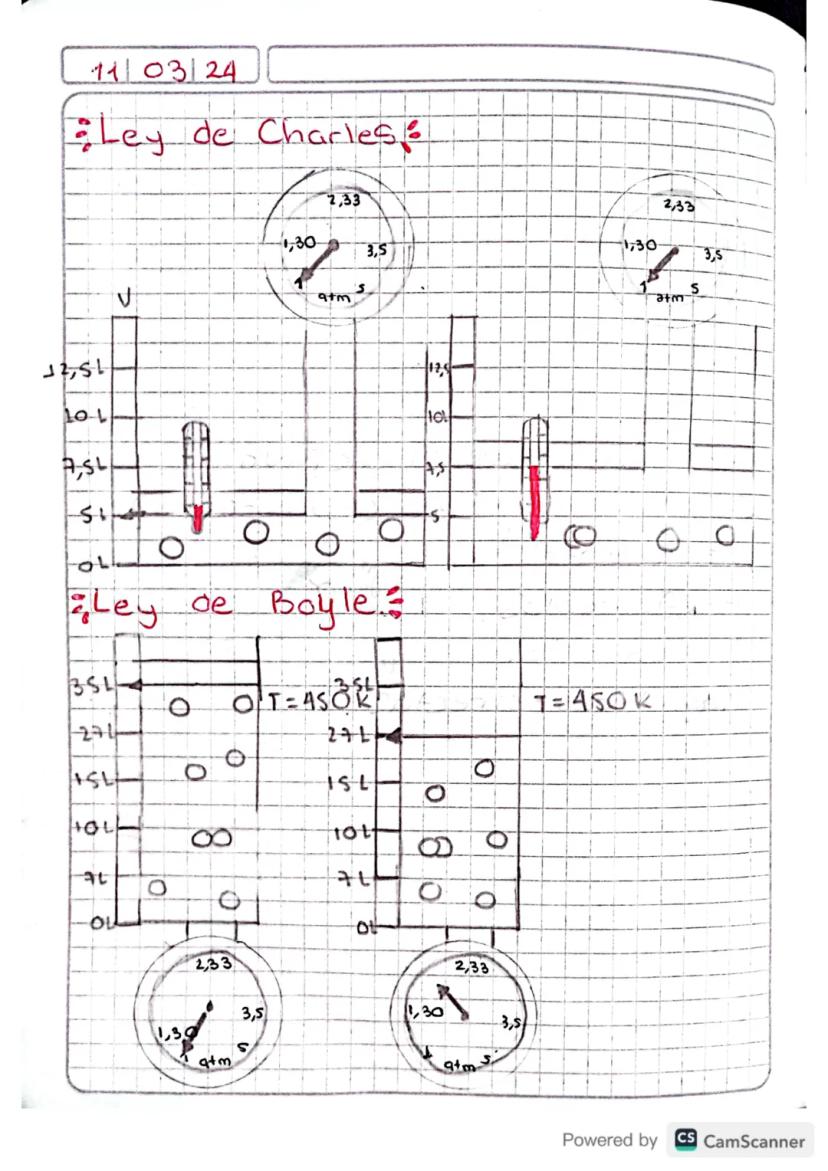 11/03/24
Ley de Charles
2,33
1,30
3,5
1
atm
5
2,33
1,30
3,5
1
atm
5
V
12,5L
10 L
7,5L
5L
0L
12,5
10L
7,5
5
Ley de Boyle
35L
27L
15L
10L
7L
0L
T=450K
35L
27L
15L
10L
7L
0L
T=450K
2,33
1,30
3,5
1
atm
5
2,33
1,30
3,5
1
atm
5
Powered by CS CamScanner